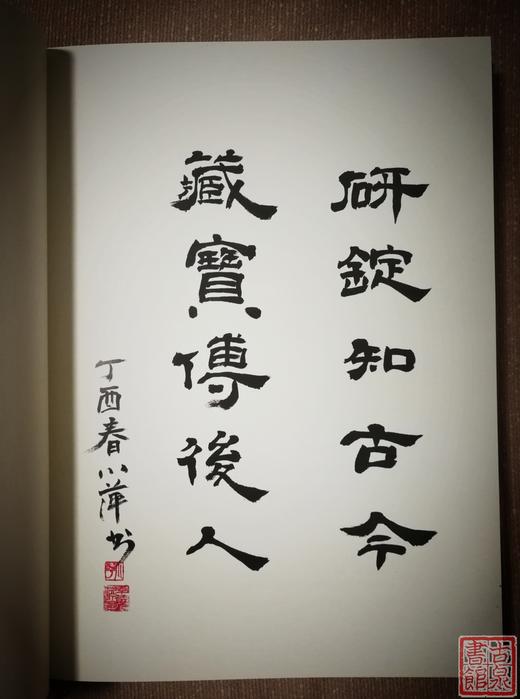 研錠知古今
藏寶傳後人
丁酉春小萍书
古泉書館